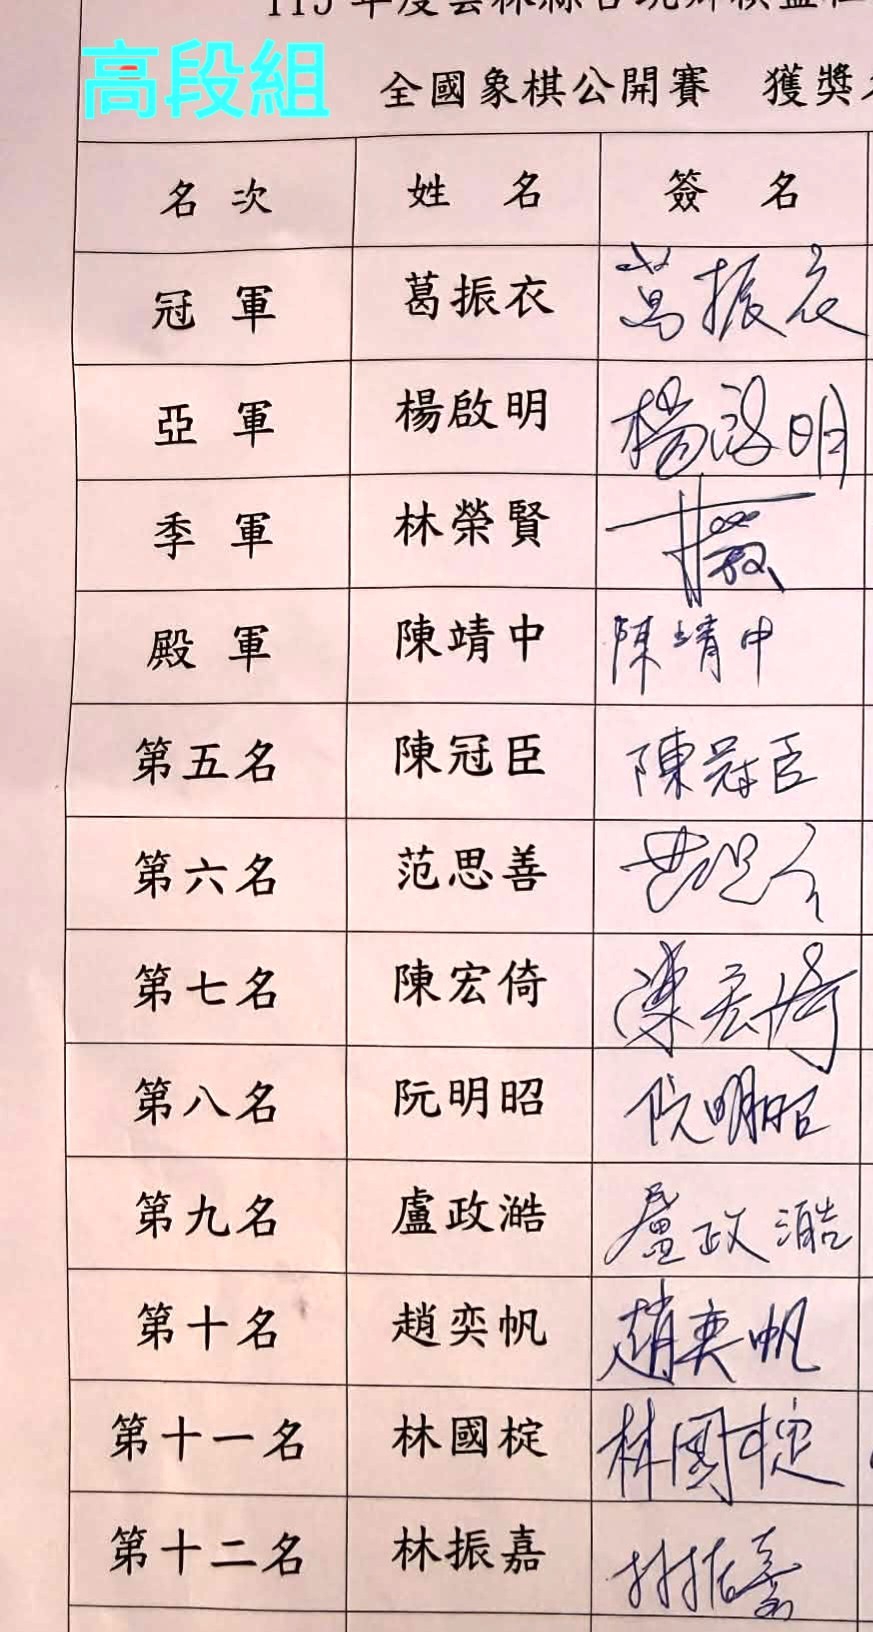 高段組
全國象棋公開賽 獲獎
名次 姓名 簽名
冠軍 葛振衣 葛振衣
亞軍 楊啟明 楊啟明
季軍 林榮賢
殿軍 陳靖中 陳靖中
第五名 陳冠臣 陳冠臣
第六名 范思善
第七名 陳宏倚 陳宏倚
第八名 阮明昭 阮明昭
第九名 盧政澔 盧政澔
第十名 趙奕帆 趙奕帆
第十一名 林國椗 林國椗
第十二名 林振嘉 林振嘉